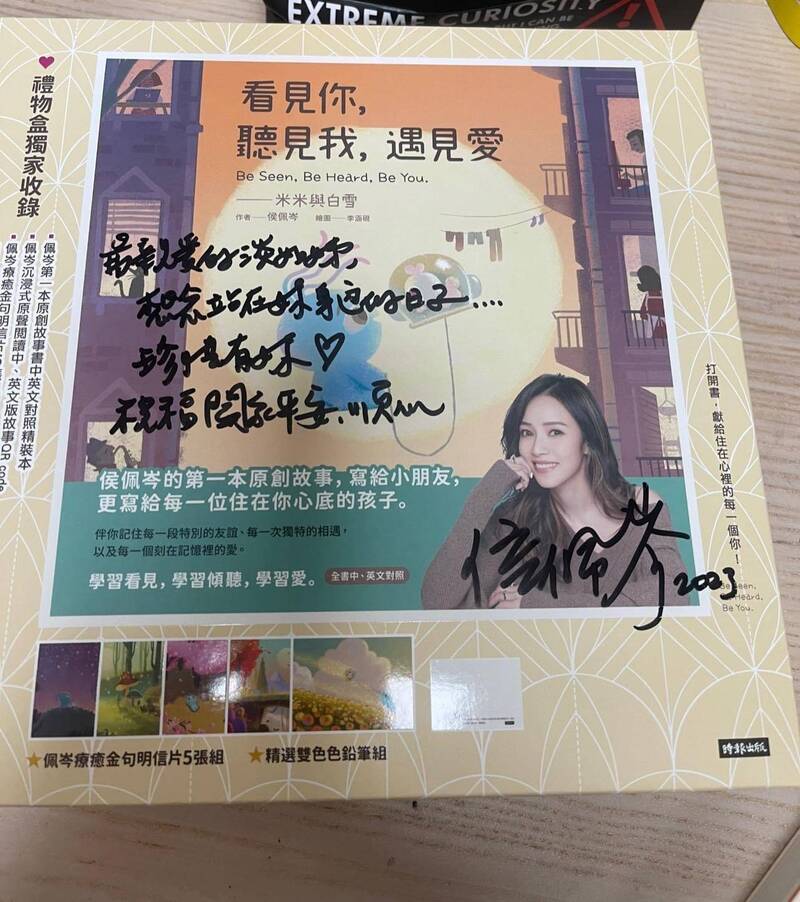 EXTREME CURIOSITY
BUT I CAN BE
看見你,
聽見我, 遇見愛
Be Seen, Be Heard, Be You.
——米米與白雪
作者——侯佩岑 繪圖——李涵硯
最親愛的淡如姊,
想念站在妳身邊的日子....
珍惜有妳♡
祝福闔家平安.順心
侯佩岑的第一本原創故事,寫給小朋友,
更寫給每一位住在你心底的孩子。
伴你記住每一段特別的友誼、每一次獨特的相遇,
以及每一個刻在記憶裡的愛。
學習看見,學習傾聽,學習愛。 全書中、英文對照
侯佩岑 2023
♥禮物盒獨家收錄
■佩岑第一本原創故事書中英文對照精裝本
■佩岑沉浸式原聲閱讀中、英文版故事QR code
■佩岑療癒金句明信片
打開書,獻給住在心裡的每一個你!
Be Seen,
Be Heard,
Be You.
★佩岑療癒金句明信片5張組 ★精選雙色色鉛筆組
時報出版